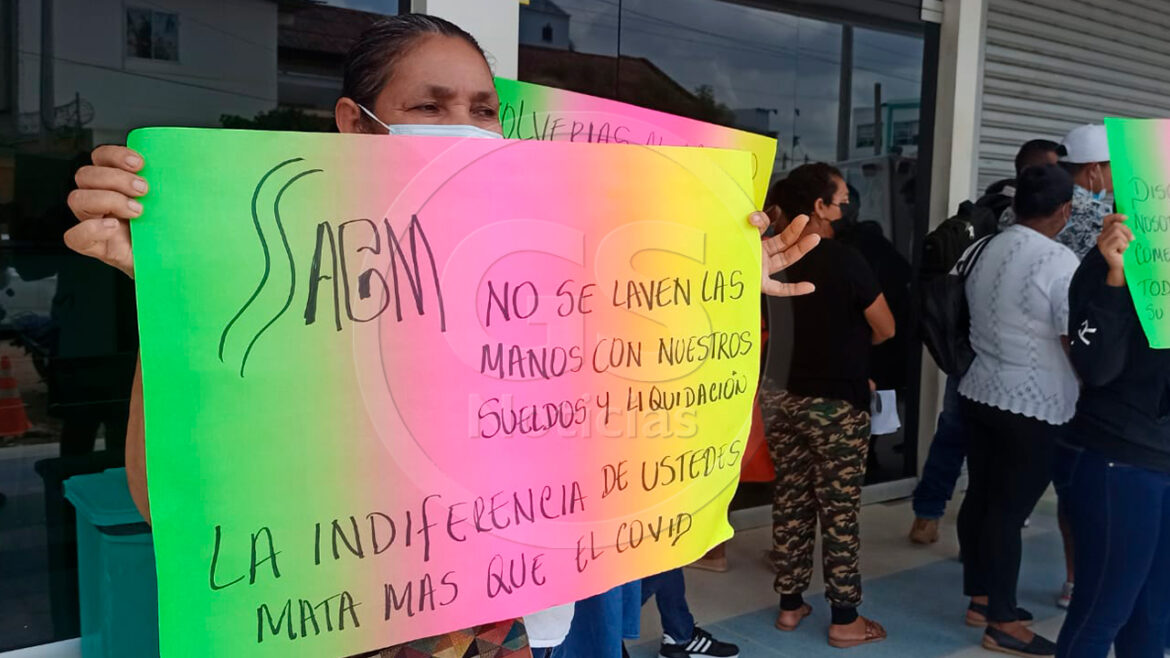 SAGM
NO SE LAVEN LAS
MANOS CON NUESTROS
SUELDOS Y LIQUIDACIÓN
LA INDIFERENCIA DE USTEDES
MATA MAS QUE EL COVID
VOLVERIAS
GS
Noticias
NOSO
COME
TOD
SU